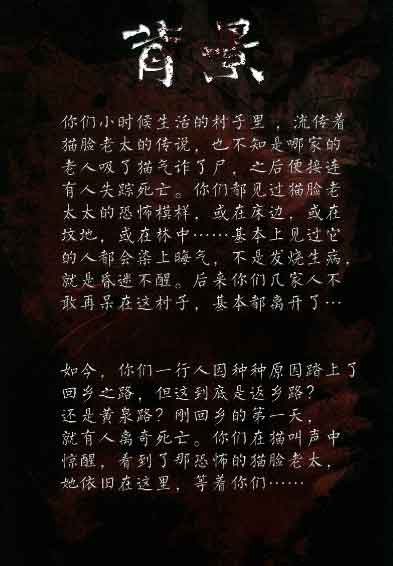 背景
你们小时候生活的村子里，流传着
猫脸老太的传说，也不知是哪家的
老人吸了猫气诈了尸，之后便接连
有人失踪死亡。你们都见过猫脸老
太太的恐怖模样，或在床边，或在
坟地，或在林中……基本上见过它
的人都会染上晦气，不是发烧生病，
就是昏迷不醒。后来你们几家人不
敢再呆在这村子，基本都离开了…
如今，你们一行人因种种原因踏上了
回乡之路，但这到底是返乡路？
还是黄泉路？刚回乡的第一天，
就有人离奇死亡。你们在猫叫声中
惊醒，看到了那恐怖的猫脸老太，
她依旧在这里，等着你们……